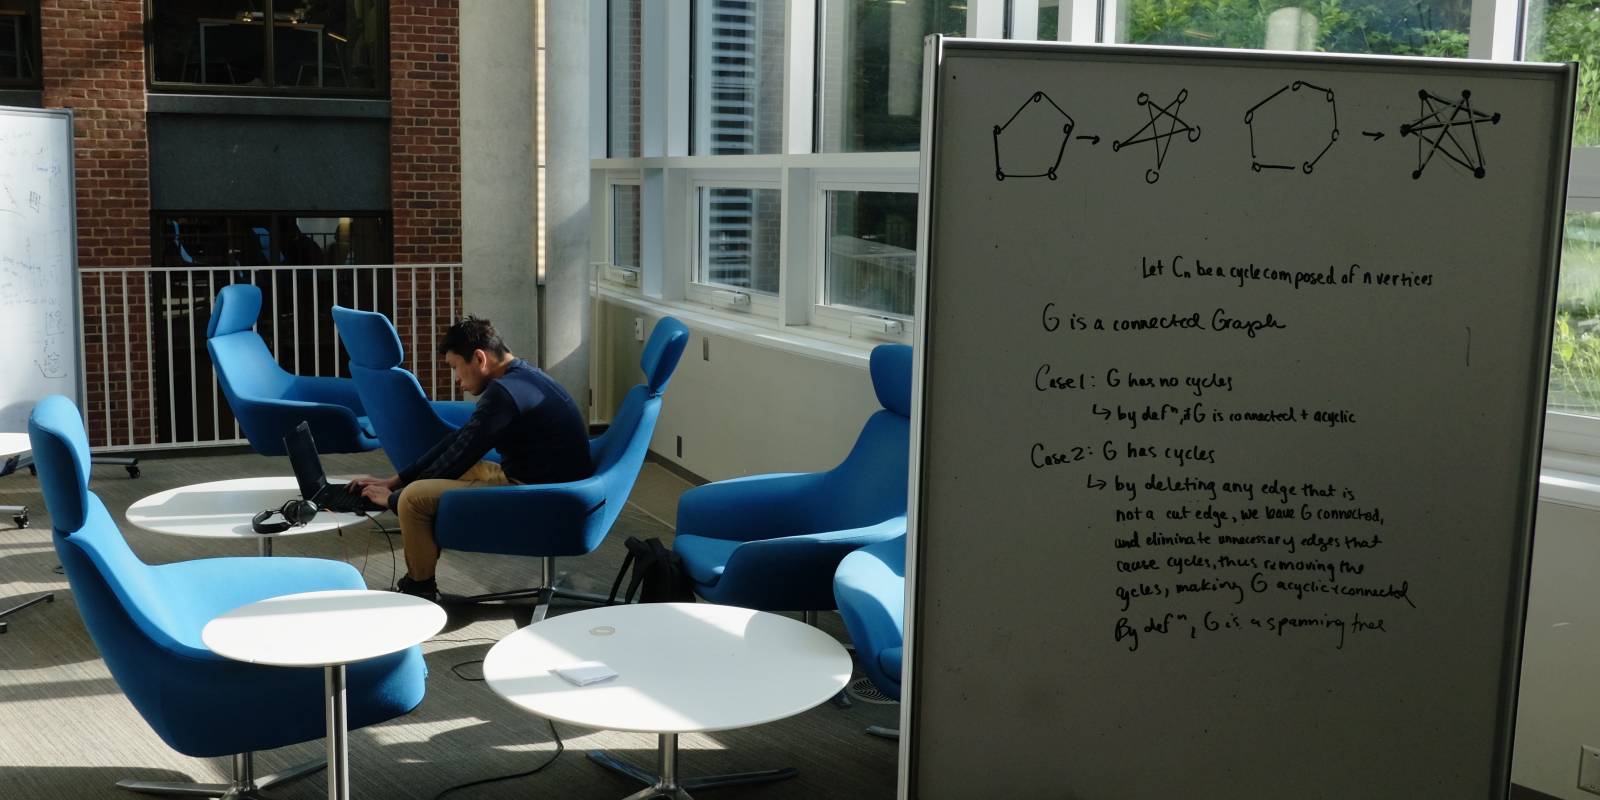 Let Cn be a cycle composed of n vertices
G is a connected Graph
Case 1: G has no cycles
↳ by defⁿ, if G is connected + acyclic
Case 2: G has cycles
↳ by deleting any edge that is
not a cut edge, we leave G connected,
and eliminate unnecessary edges that
cause cycles, thus removing the
cycles, making G acyclic + connected
By defⁿ, G is a spanning tree